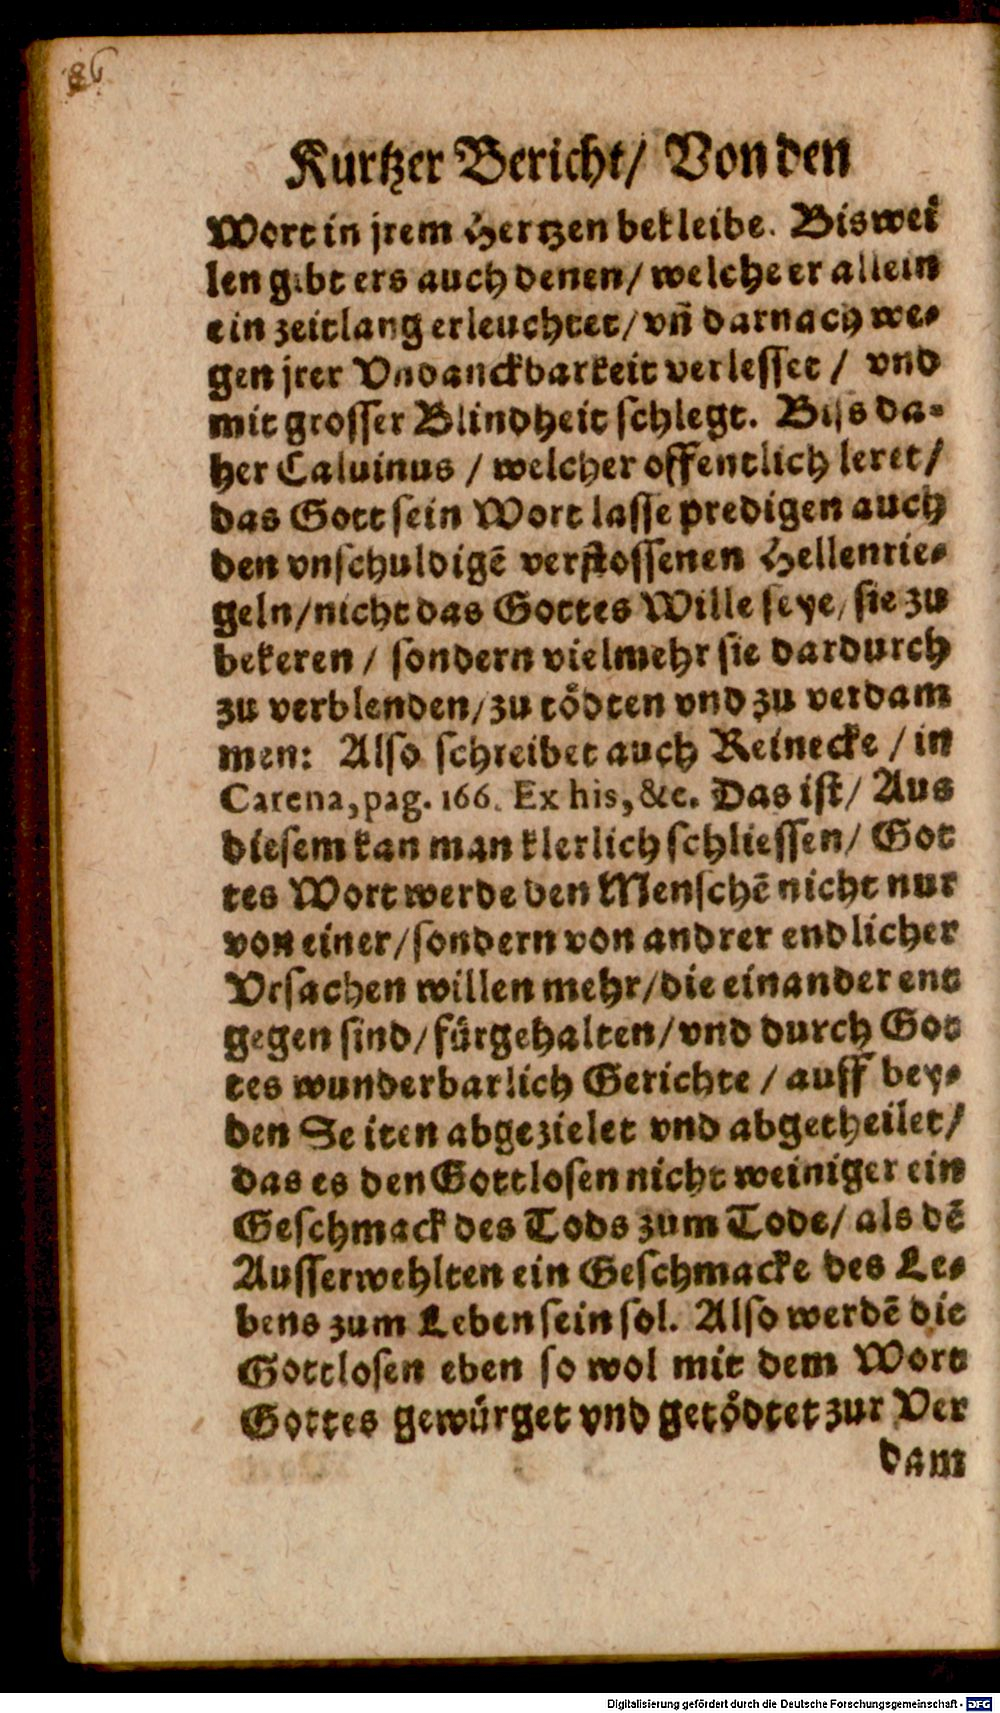 86
Kurtzer Bericht/ Von den
Wort in jrem Hertzen bekleibe. Biswei
len gibt ers auch denen/ welche er allein
ein zeitlang erleuchtet/ vn̄ darnach we-
gen jrer Vndanckbarkeit verlesset / vnd
mit grosser Blindheit schlegt. Biss da-
her Caluinus / welcher offentlich leret/
das Gott sein Wort lasse predigen auch
den vnschuldigē verstossenen Hellenrie-
geln/ nicht das Gottes Wille seye/ sie zu
bekeren / sondern vielmehr sie dardurch
zu verblenden/ zu tödten vnd zu verdam
men: Also schreibet auch Reinecke / in
Catena, pag. 166. Ex his, &c. Das ist/ Aus
diesem kan man klerlich schliessen/ Got
tes Wort werde den Menschē nicht nur
von einer/ sondern von andrer endlicher
Vrsachen willen mehr/ die einander ent
gegen sind/ fürgehalten/ vnd durch Got
tes wunderbarlich Gerichte / auff bey-
den Seiten abgezielet vnd abgetheilet/
das es den Gottlosen nicht weiniger ein
Geschmack des Tods zum Tode/ als dē
Ausserwehlten ein Geschmacke des Le-
bens zum Leben sein sol. Also werdē die
Gottlosen eben so wol mit dem Wort
Gottes gewürget vnd getödtet zur Ver
dam
Digitalisierung gefördert durch die Deutsche Forschungsgemeinschaft - DFG